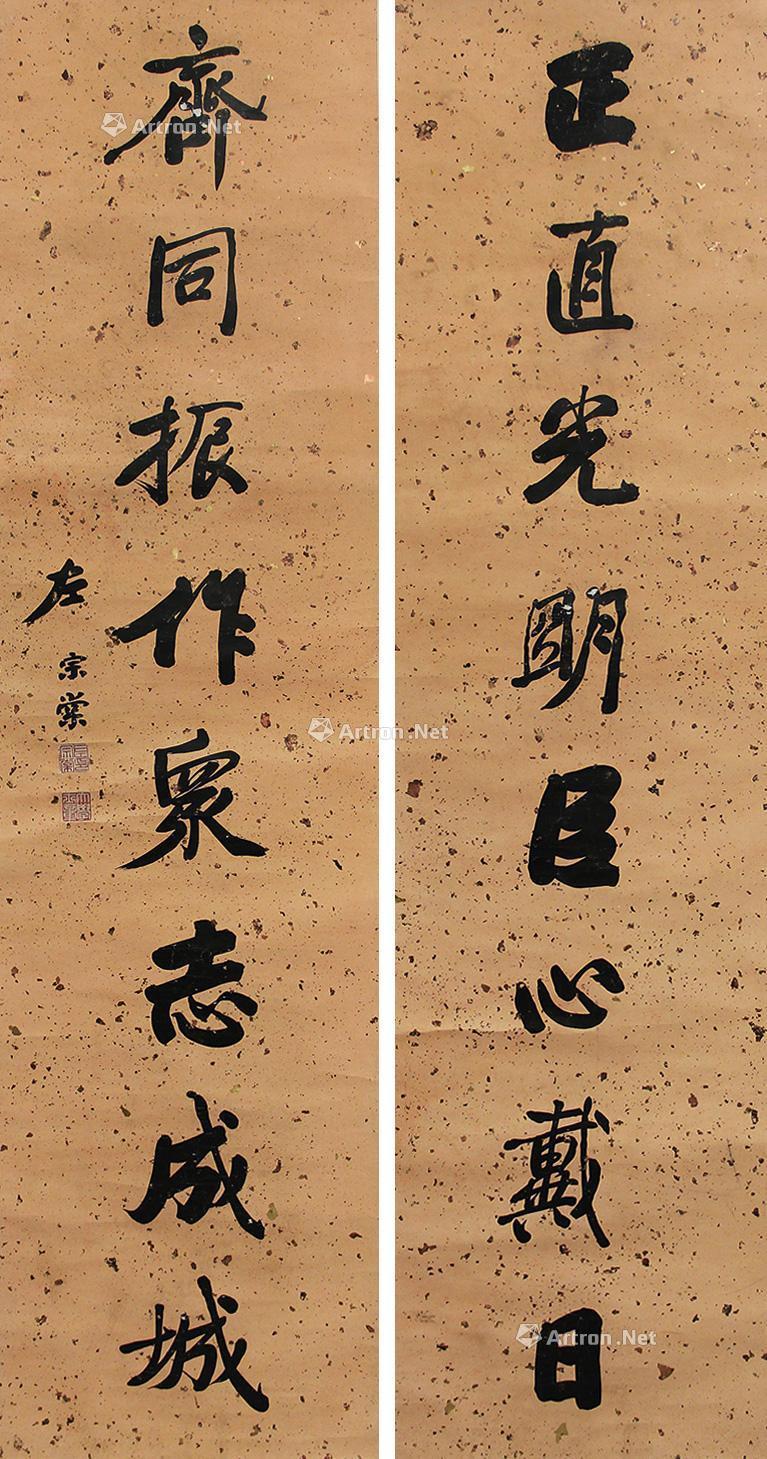 正直光明臣心戴日
齊同振作眾志成城
左宗棠
Artron.Net
Artron.Net
Artron.Net